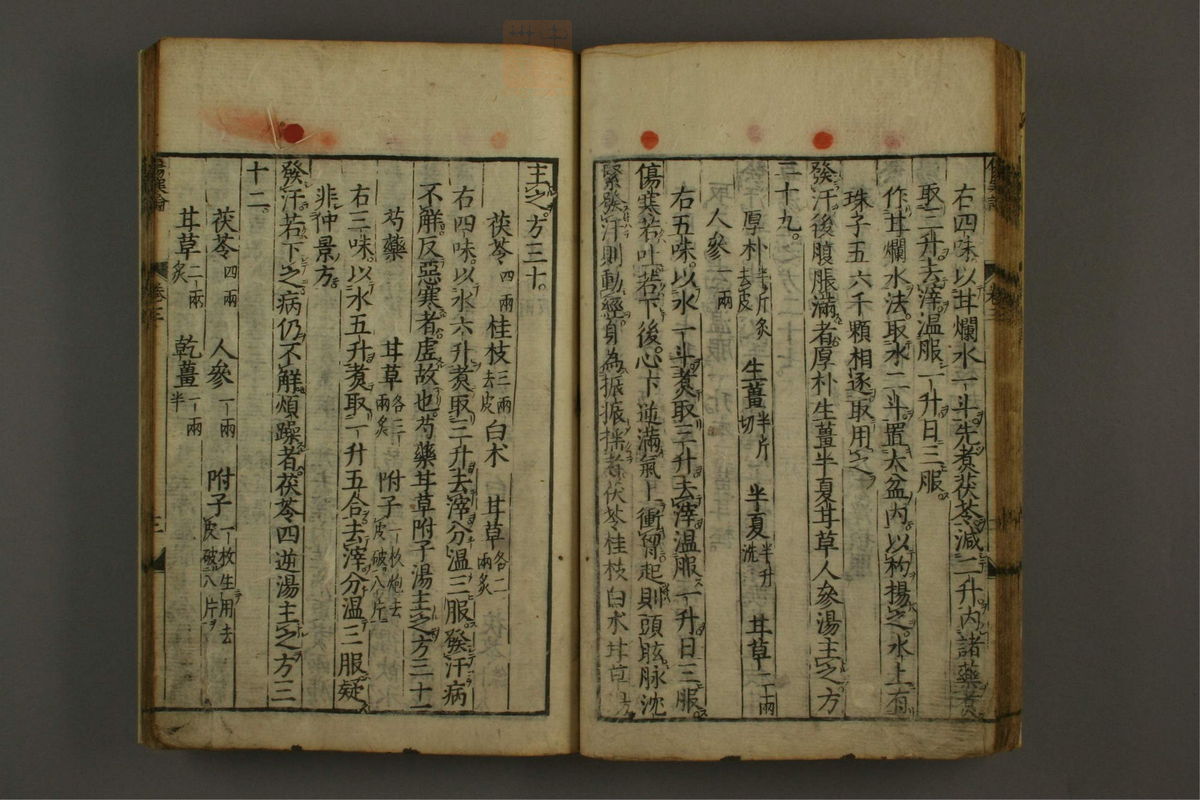 右四味以甘爛水一斗先煑茯苓減二升内諸藥煑
取三升去滓温服一升日三服
作甘爛水法取水二斗置大盆内以杓揚之水上有
珠子五六千顆相逐取用之
發汗後腹脹滿者厚朴生薑半夏甘草人參湯主之方
二十九
厚朴半斤炙去皮 生薑半斤切 半夏半升洗 甘草二兩
人參一兩
右五味以水一斗煑取三升去滓温服一升日三服
傷寒若吐若下後心下逆滿氣上衝胷起則頭眩脉沈
緊發汗則動經身為振振揺者茯苓桂枝白朮甘草湯
主之方三十
茯苓四兩 桂枝三兩去皮 白朮 甘草各二兩炙
右四味以水六升煑取三升去滓分温三服發汗病
不解反惡寒者虚故也芍藥甘草附子湯主之方三十一
芍藥 甘草各三兩炙 附子一枚炮去皮破八片
右三味以水五升煑取一升五合去滓分温三服疑
非仲景方
發汗若下之病仍不解煩躁者茯苓四逆湯主之方三
十二
茯苓四兩 人參一兩 附子一枚生用去皮破八片
甘草二兩炙 乾薑一兩半
卷三
三